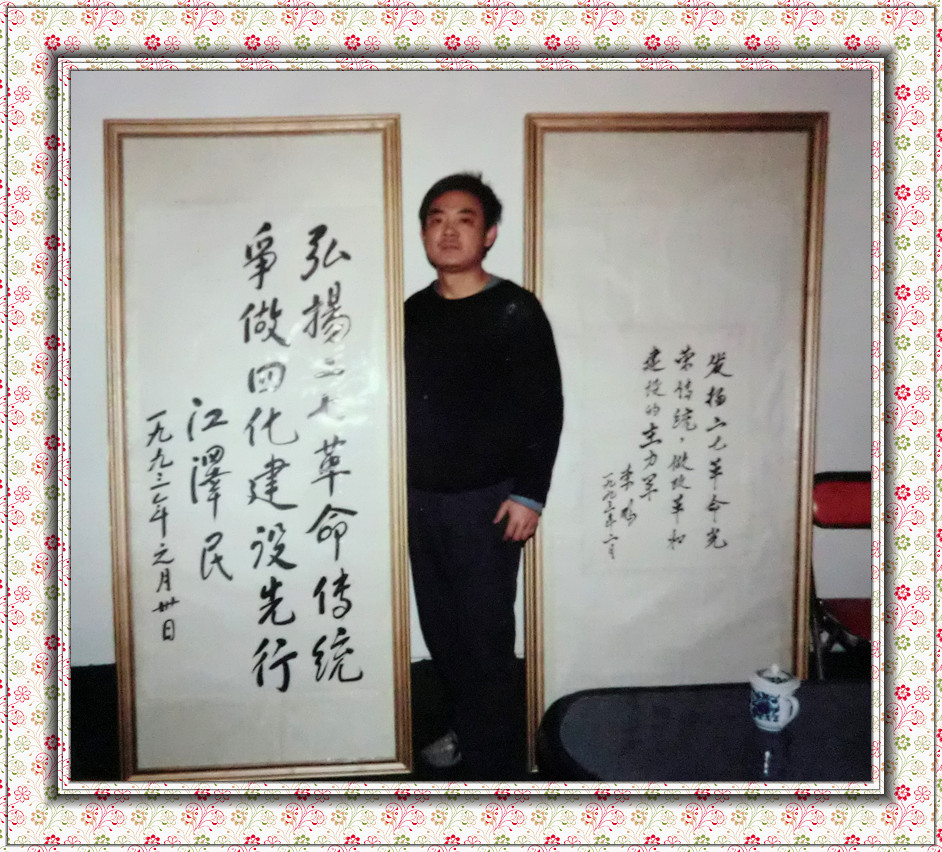 弘揚二七革命传统
爭做四化建设先行
江澤民
一九九三年元月卅日
发扬二七革命光
荣传统，做改革和
建设的主力军
李鹏
一九九三年二月